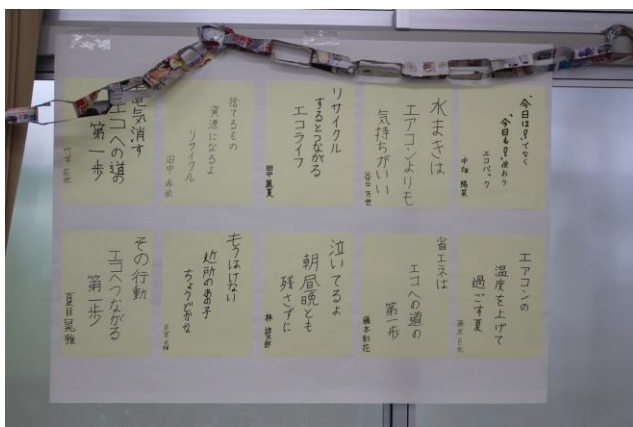 今日は！でなく
今日も！使おう
エコバック
中畑 陽菜
水まきは
エアコンよりも
気持ちがいい
谷口万世
リサイクル
するとつながる
エコライフ
田中麗夏
捨てるもの
資源になるよ
リサイクル
田中
電気消す
エコへの道の
第一歩
エアコンの
温度を上げて
過ごす夏
省エネは
エコへの道の
第一歩
藤本彩花
泣いてるよ
朝昼晩とも
残さずに
林
もうはけない
近所のあの子
ちょうどかな
その行動
エコへつながる
第一歩
夏目晃雅